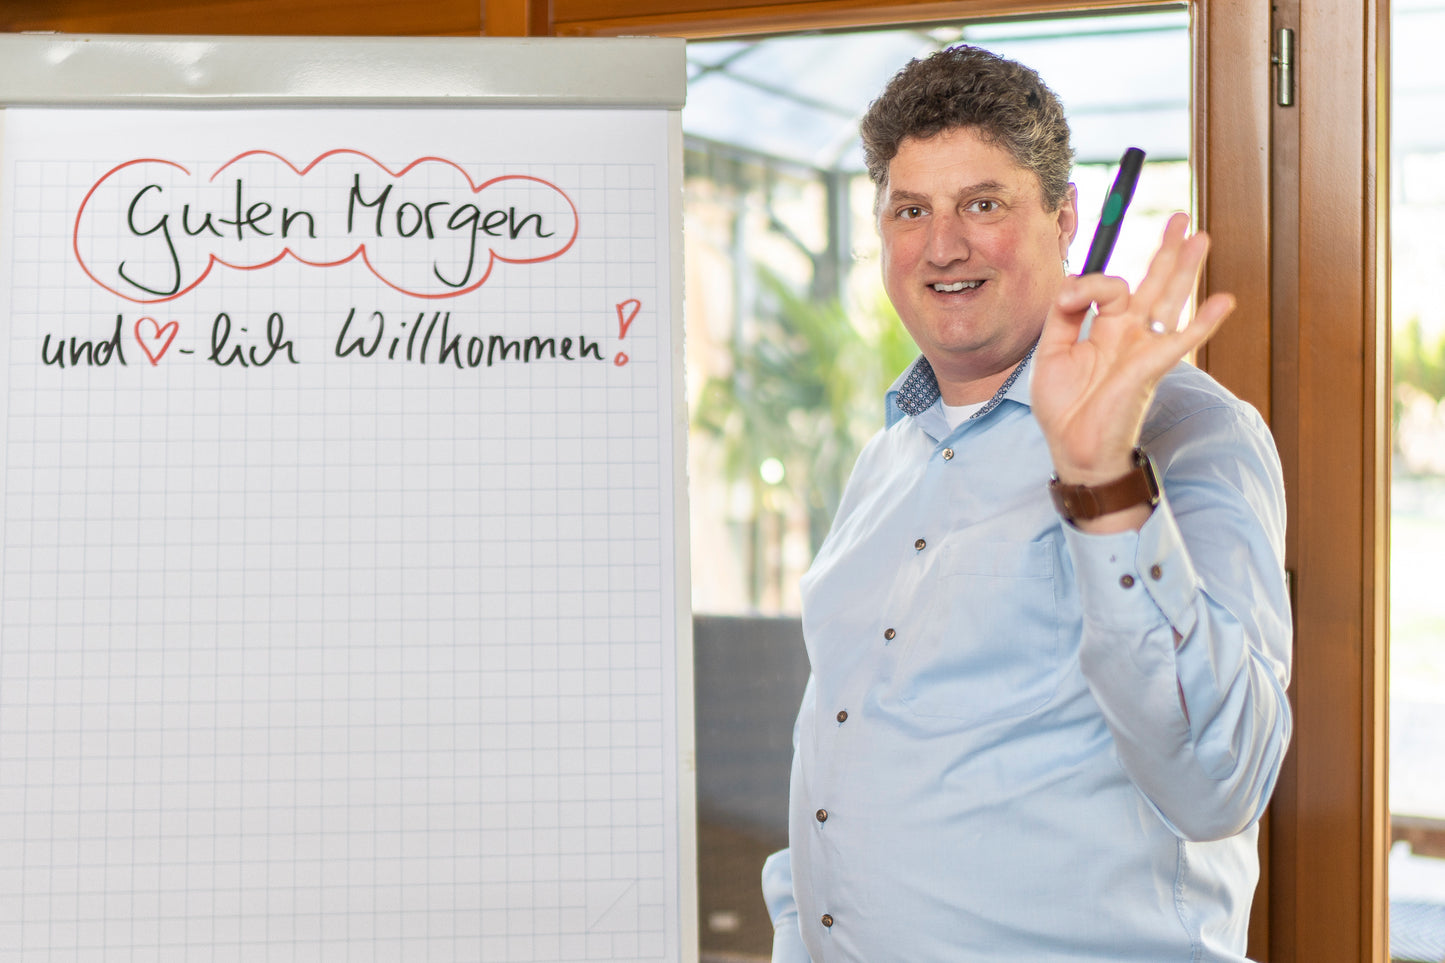 Guten Morgen
und ♡-lich Willkommen!